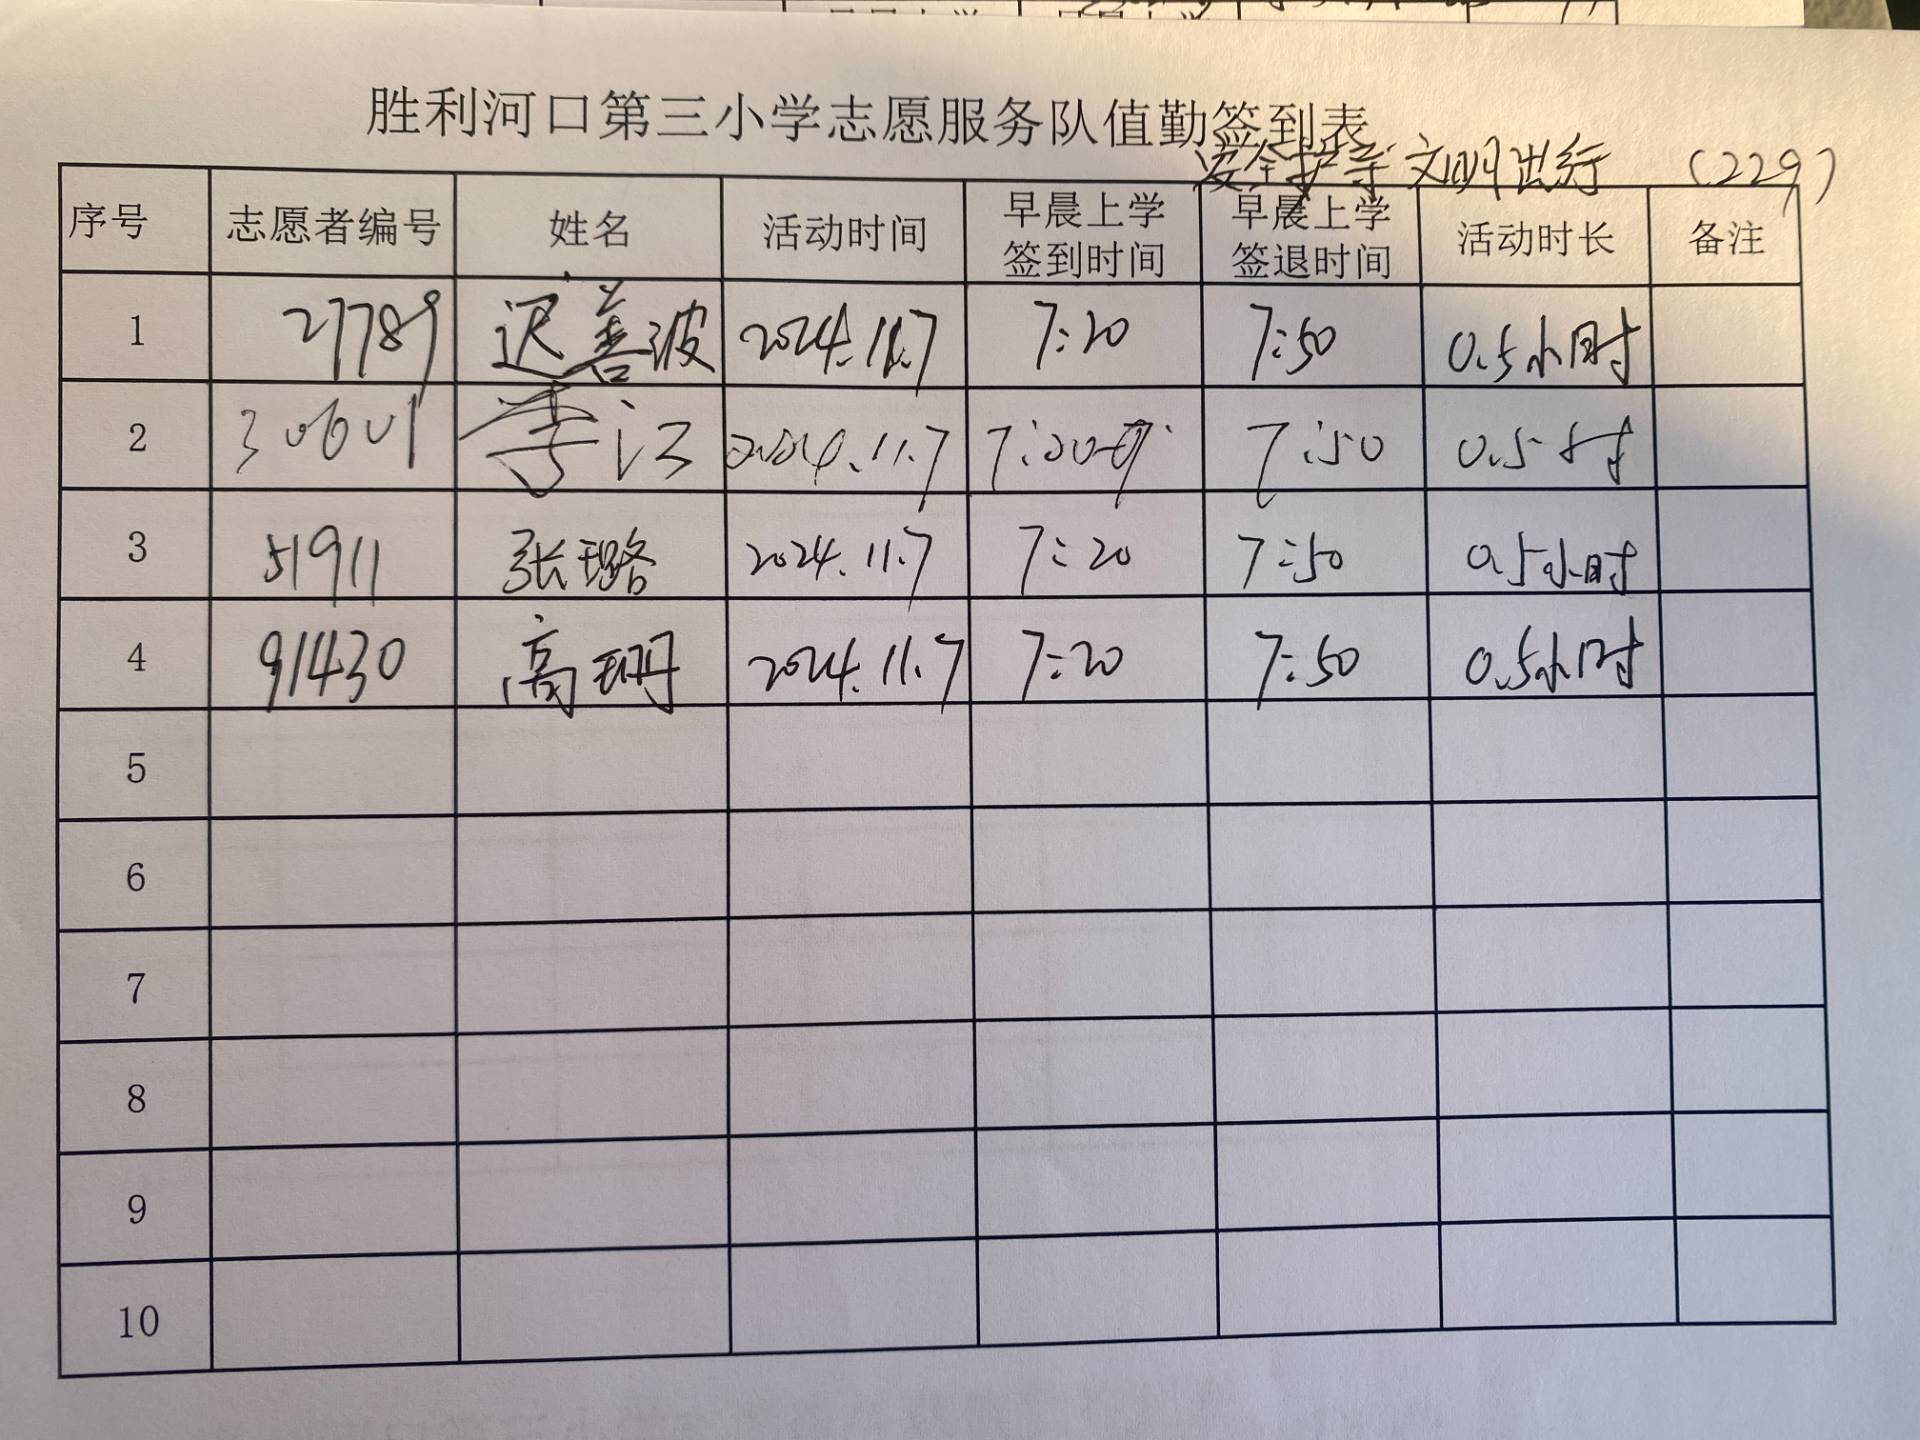 胜利河口第三小学志愿服务队值勤签到表
安全护学 文明出行 (229)
序号 志愿者编号 姓名 活动时间 早晨上学签到时间 早晨上学签退时间 活动时长 备注
1 27789 迟善波 2024.11.7 7:20 7:50 0.5小时
2 30601 李江 2024.11.7 7:20 7:50 0.5时
3 51911 张璐 2024.11.7 7:20 7:50 0.5小时
4 91430 高珊 2024.11.7 7:20 7:50 0.5小时
5
6
7
8
9
10